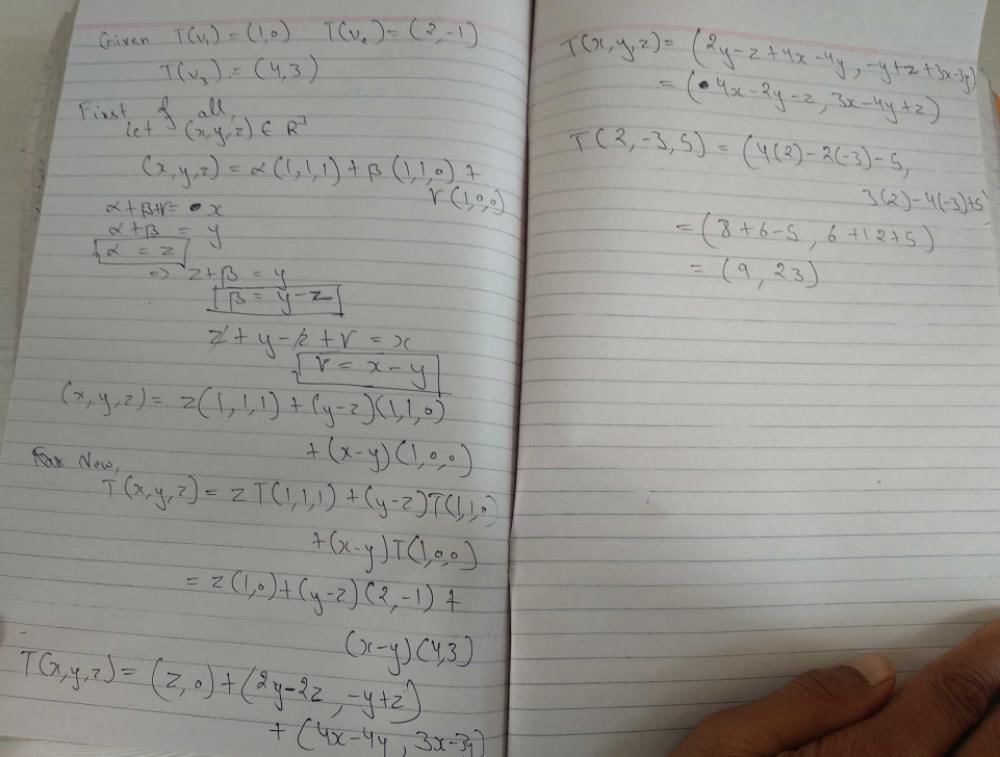 Given T(v₁) = (1,0) T(v₂) = (2,-1)
T(v₃) = (4,3)
First of all,
let (x,y,z) ∈ R³
(x,y,z) = α(1,1,1) + β(1,1,0) +
γ(1,0,0)
α+β+γ = x
α+β = y
α = z
⇒ z+β = y
β = y-z
z + y - z + γ = x
γ = x-y
(x,y,z) = z(1,1,1) + (y-z)(1,1,0)
+ (x-y)(1,0,0)
Now,
T(x,y,z) = z T(1,1,1) + (y-z)T(1,1,0)
+(x-y)T(1,0,0)
= z(1,0)+(y-z)(2,-1) +
(x-y)(4,3)
T(x,y,z) = (z,0) + (2y-2z, -y+z)
+ (4x-4y, 3x-3y)
T(x,y,z) = (2y-z+4x-4y, -y+z+3x-3y)
= (4x-2y-z, 3x-4y+z)
T(2,-3,5) = (4(2)-2(-3)-5,
3(2)-4(-3)+5)
= (8+6-5, 6+12+5)
= (9, 23)